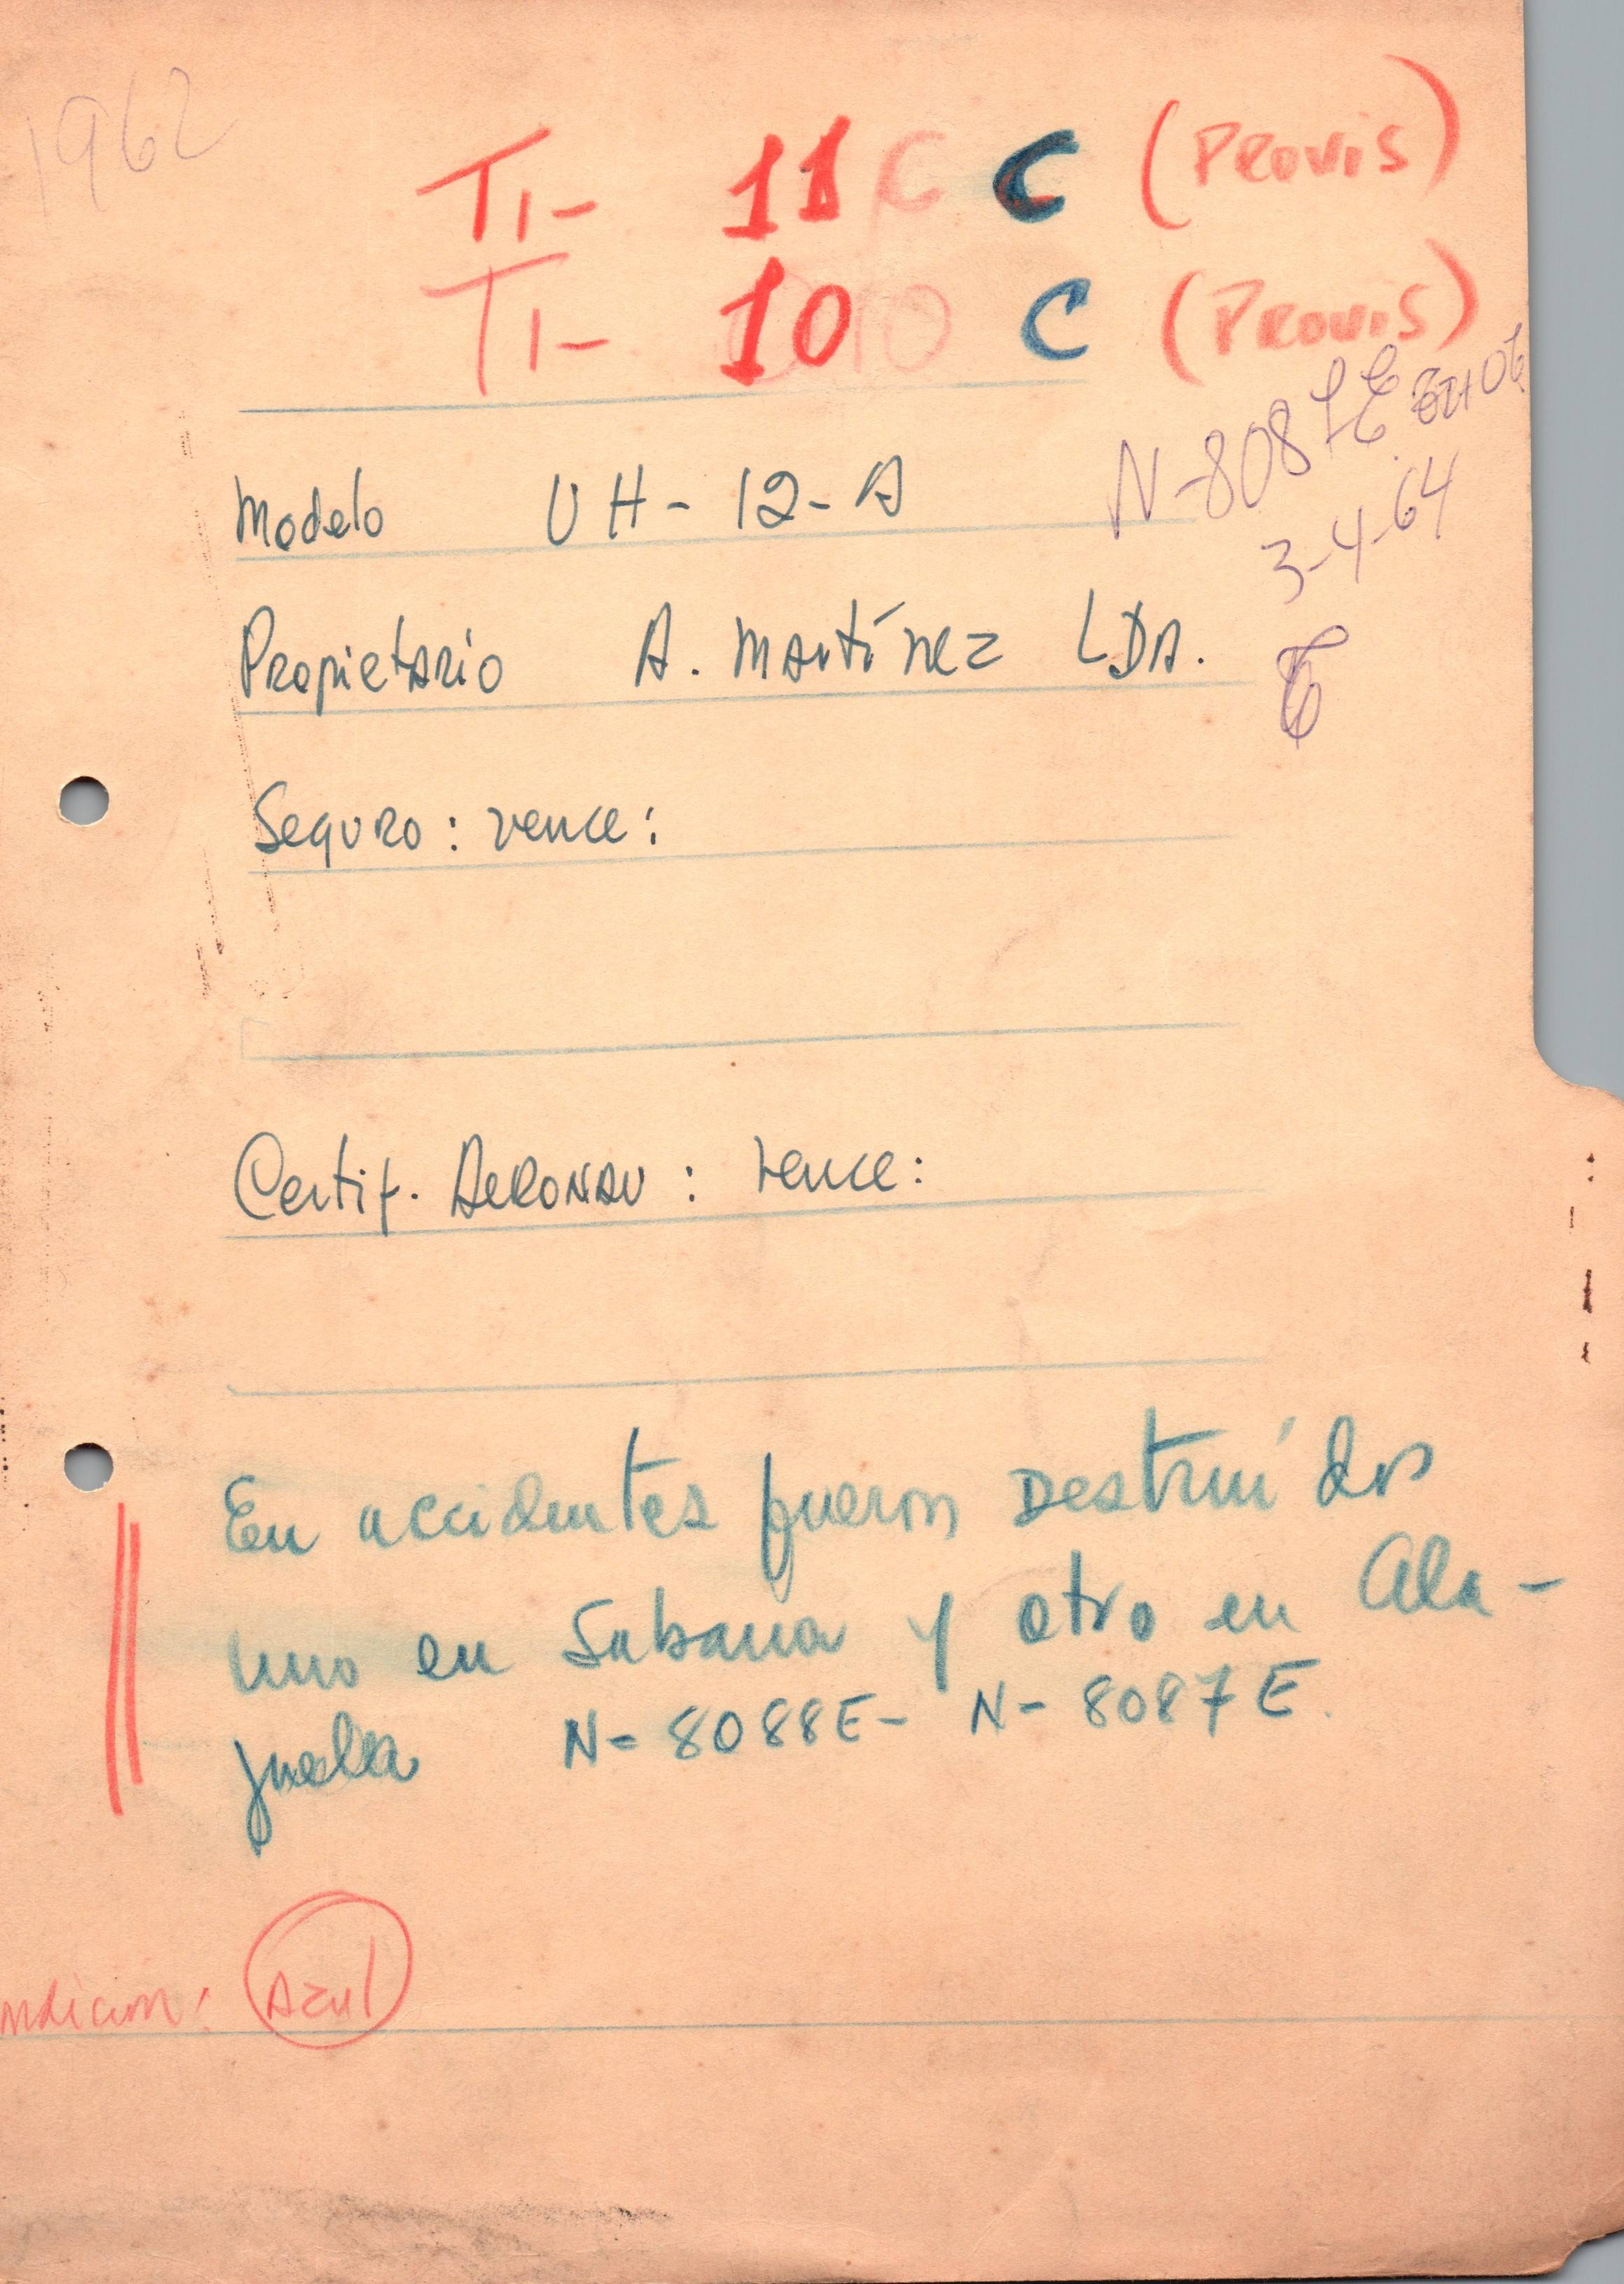 1962
TI- 11 C C (PROVIS)
TI- 10 C (PROVIS)
N-8087E
Modelo UH-12-A
3-4-64
Propietario A. Martínez LDA.
Seguro: vence:
Certif. AERONAV: vence:
En accidentes fueron Destruídos
uno en Sabana y otro en Ala-
juela N-8088E- N-8087E.
ndicion: Azul